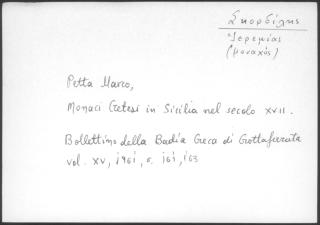 Σκορδίλης
Ἱερεμίας
(μοναχός)
Petta Marco,
Monaci Cretesi in Sicilia nel secolo XVII.
Bollettino della Badia Greca di Grottaferrata
vol. XV, 1961, σ. 161, 163